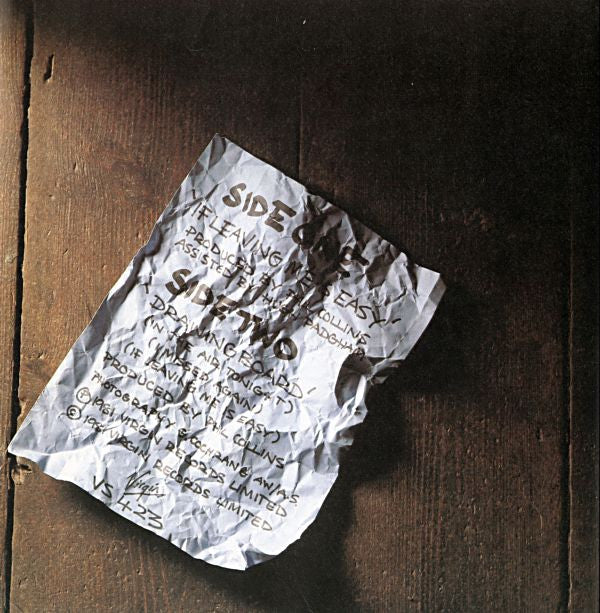 SIDE ONE
'IF LEAVING ME IS EASY'
PRODUCED BY PHIL COLLINS
ASSISTED BY HUGH PADGHAM
SIDE TWO
'DRAWING BOARD'
('IN THE AIR TONIGHT')
(I MISSED AGAIN)
(IF LEAVING ME IS EASY)
PRODUCED BY PHIL COLLINS
PHOTOGRAPHY COCHRANE/ AW/A.S.
Ⓟ 1981 VIRGIN RECORDS LIMITED
© 1981 VIRGIN RECORDS LIMITED
Virgin
VS 423